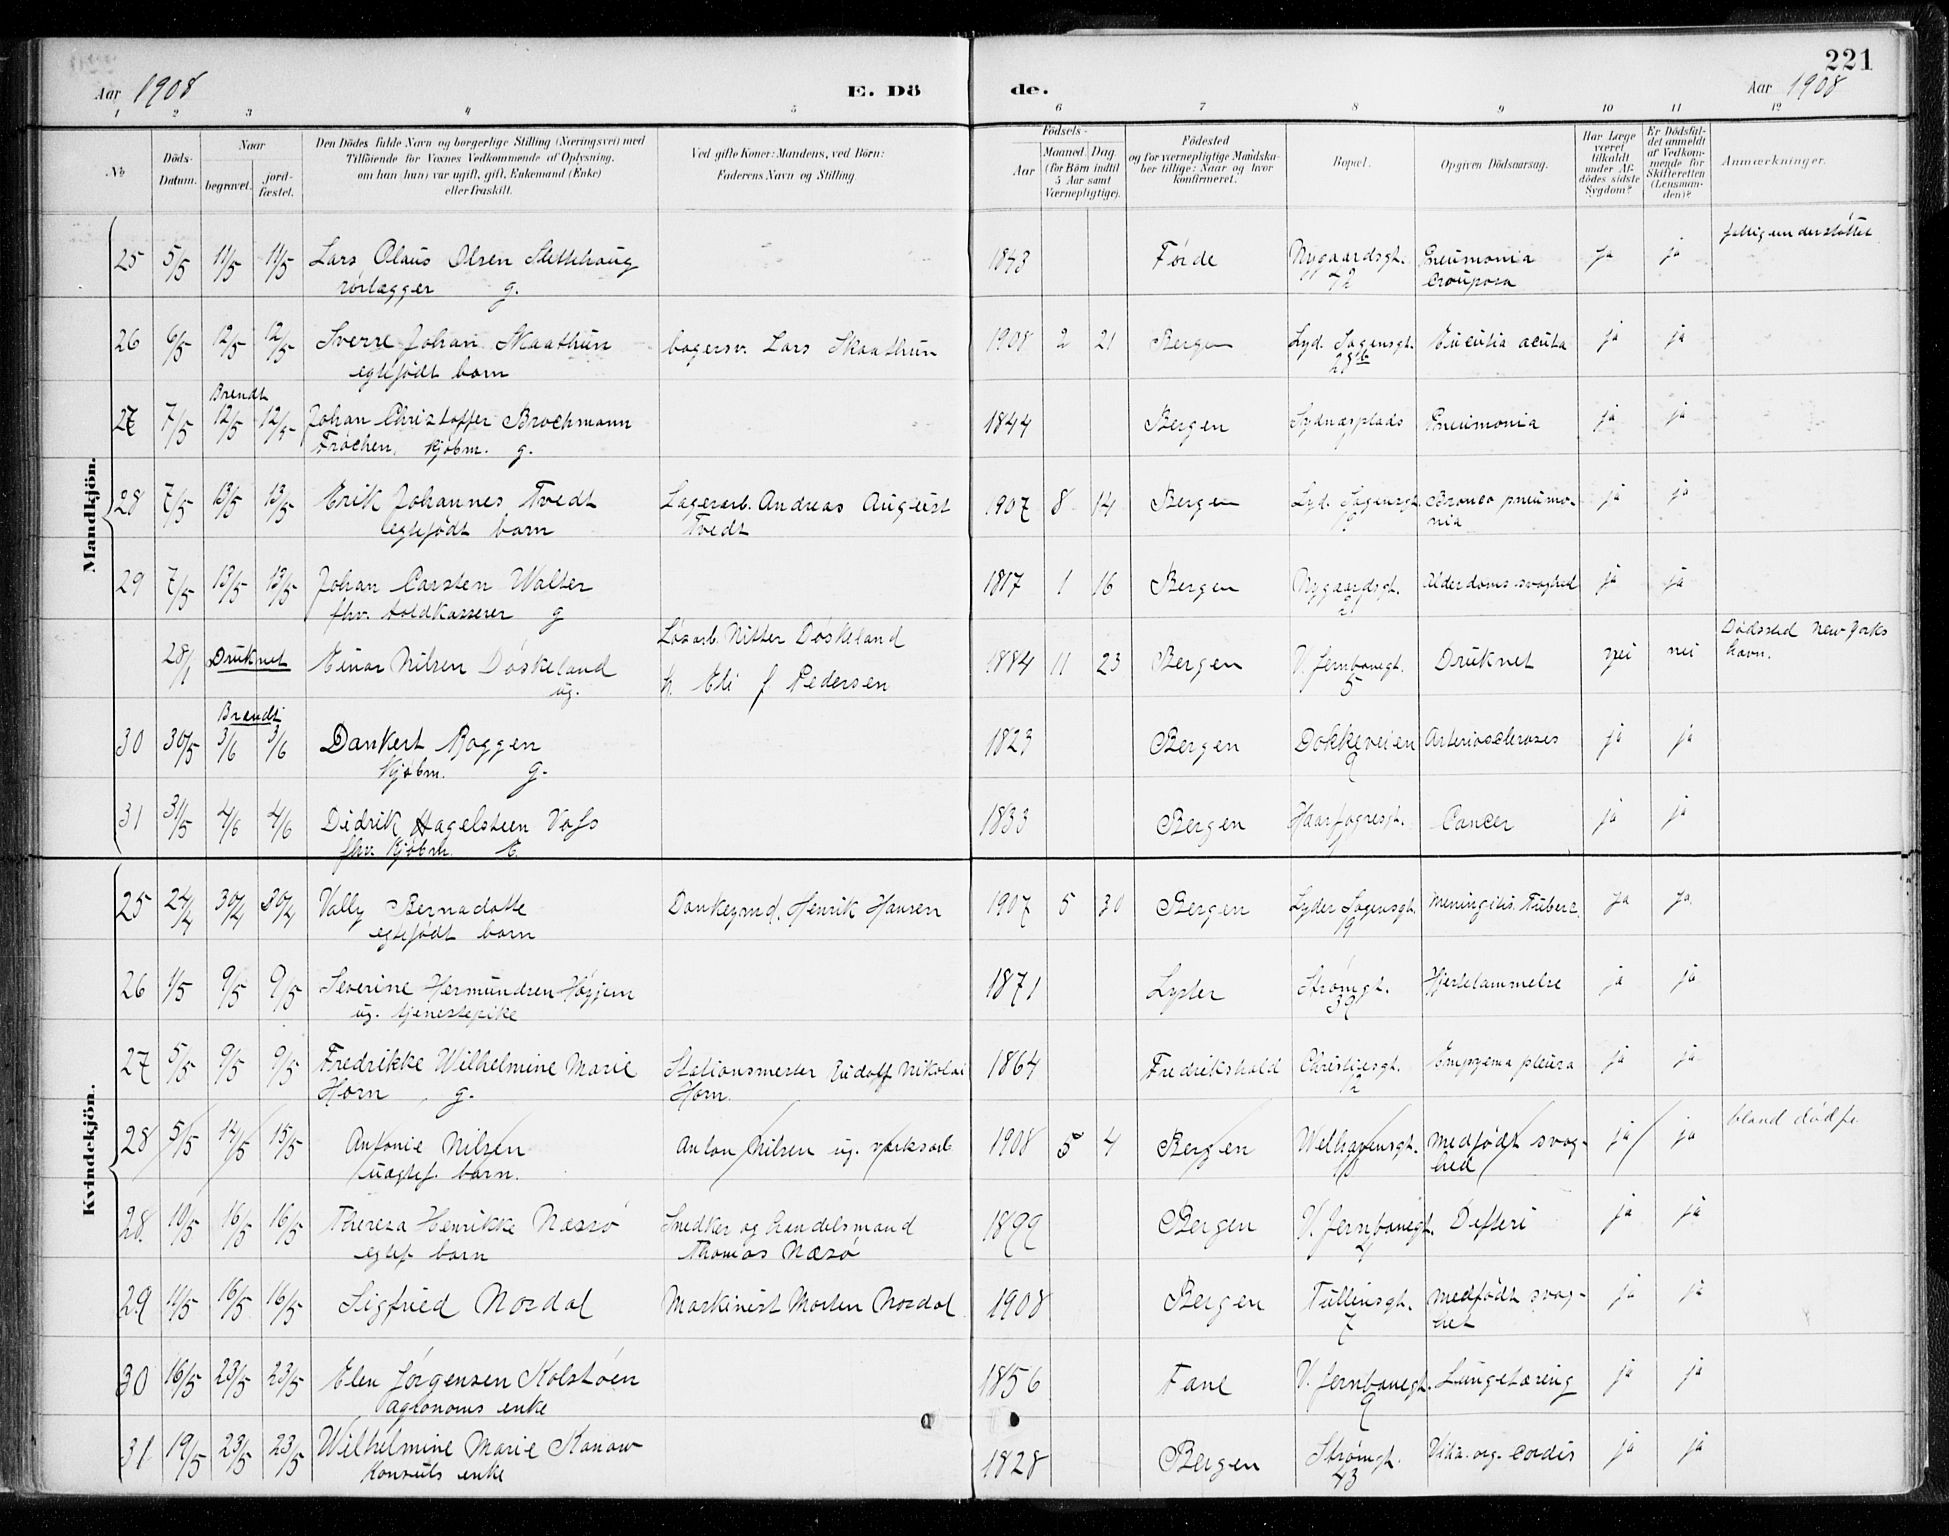 221
Aar 1908 E. Dö de. Aar 1908
1 2 3 4 5 6 7 8 9 10 11 12
No
Döds-Datum.
Naar
begravet.
jord-fæstet.
Den Dödes fulde Navn og borgerlige Stilling (Næringsvei) med
Tilföiende for Voxnes Vedkommende af Oplysning,
om han (hun) var ugift, gift, Enkemand (Enke)
eller fraskilt.
Ved gifte Koner: Mandens, ved Börn:
Faderens Navn og Stilling.
Födsels-
Aar
Maaned
Dag
(for Börn indtil
5 Aar samt
Værnepligtige).
Födested
og for værnepligtige Mandska-
ber tillige: Naar og hvor
konfirmeret.
Bopæl.
Opgiven Dödsaarsag.
Har Læge
været
tilkaldt
under Af-
dödes sidste
Sygdom?
Er Dödsfal-
det anmeldt
af Vedkom-
mende for
Skifteretten
(Lensman-
den)?
Anmærkninger.
Mandkjön.
fattigunderstöttet
25 5/5 11/5 11/5 Lars Olaus Olsen Slettehaug 1843 Förde Nygaardsgt. Pneumonia ja ja
rörlægger g. 72 Crouposa
26 6/5 12/5 12/5 Sverre Johan Skaathun bogersv. Lars Skaathun 1908 2 21 Bergen Lyd. Sagensgt. acuta ja ja
egtefödt barn 28b
Brendt
27 7/5 12/5 12/5 Johan Christoffer Brochmann 1844 Bergen Sydnæsplads Pneumonia ja ja
Fröchen, kjöbm. g.
28 7/5 13/5 13/5 Erik Johannes Tvedt Lagerarb. Andreas August 1907 8 14 Bergen Lyd. Sagensgt. Bronco pneumo- ja ja
egtefödt barn Tvedt nia
29 7/5 13/5 13/5 Johan Carsten Walter 1817 1 16 Bergen Nygaardsgt. Alderdoms svaghed ja ja
fhv. toldkasserer g 2
Lösarb. Nitter Döskeland Dödssted New-Yorks
28/1 Druknet Einar Nilsen Döskeland 1884 11 23 Bergen V. Jernbanegt. Druknet nei nei havn.
ug. h. Eli f Pedersen 5
Brændt
30 30/5 3/6 3/6 Dankert Roggen 1823 Bergen Dokkeveien Arterioscleroses ja ja
Kjöbm. g. 9
31 31/5 4/6 4/6 Didrik Hagelsteen Vofs 1833 Bergen Haarfagresgt. Cancer ja ja
fhv. kjöbm. E.
Kvindekjön.
25 24/4 30/4 30/4 Vally Bernadotte Dankegmd. Henrik Hansen 1907 5 30 Bergen Lyder Sagensgt. Meningitis. Tuberc. ja ja
egtefödt barn 19
26 1/5 9/5 9/5 Severine Hermundsen Høgjem 1871 Lyster Strömgt. Hjertelammelse ja ja
ug. tjenestepike 39
27 5/5 9/5 9/5 Fredrikke Wilhelmine Marie Stationsmester Rudolf Nikolai 1864 Fredrikshald Christiesgt. Empyema pleura ja ja
Horn g. Horn. 12
28 5/5 14/5 15/5 Antonie Nilsen Anton Nilsen ug. værksarb. 1908 5 4 Bergen Welhavensgt. medfödt svag- ja ja bland dödfe
uægtef. barn. 18 hed
28. 10/5 16/5 16/5 Thereza Henrikke Næsö Snedker og handelsmand 1899 Bergen V. Jernbanegt. Defteri ja ja
egtef barn Thomas Næsö
29 11/5 16/5 16/5 Sigfried Nordal Maskinist Morten Nordal 1908 Bergen Tullinsgt. medfödt svag- ja ja
7 het
30 16/5 23/5 23/5 Elen Jörgensen Kolstöen 1856 Fane V. Jernbanegt. Lungetæring ja ja
agronoms enke 9
31 19/5 23/5 23/5 Wilhelmine Marie Konow 1828 Bergen Strömgt. Vitia. org. cordis ja ja
Konsuls enke 43